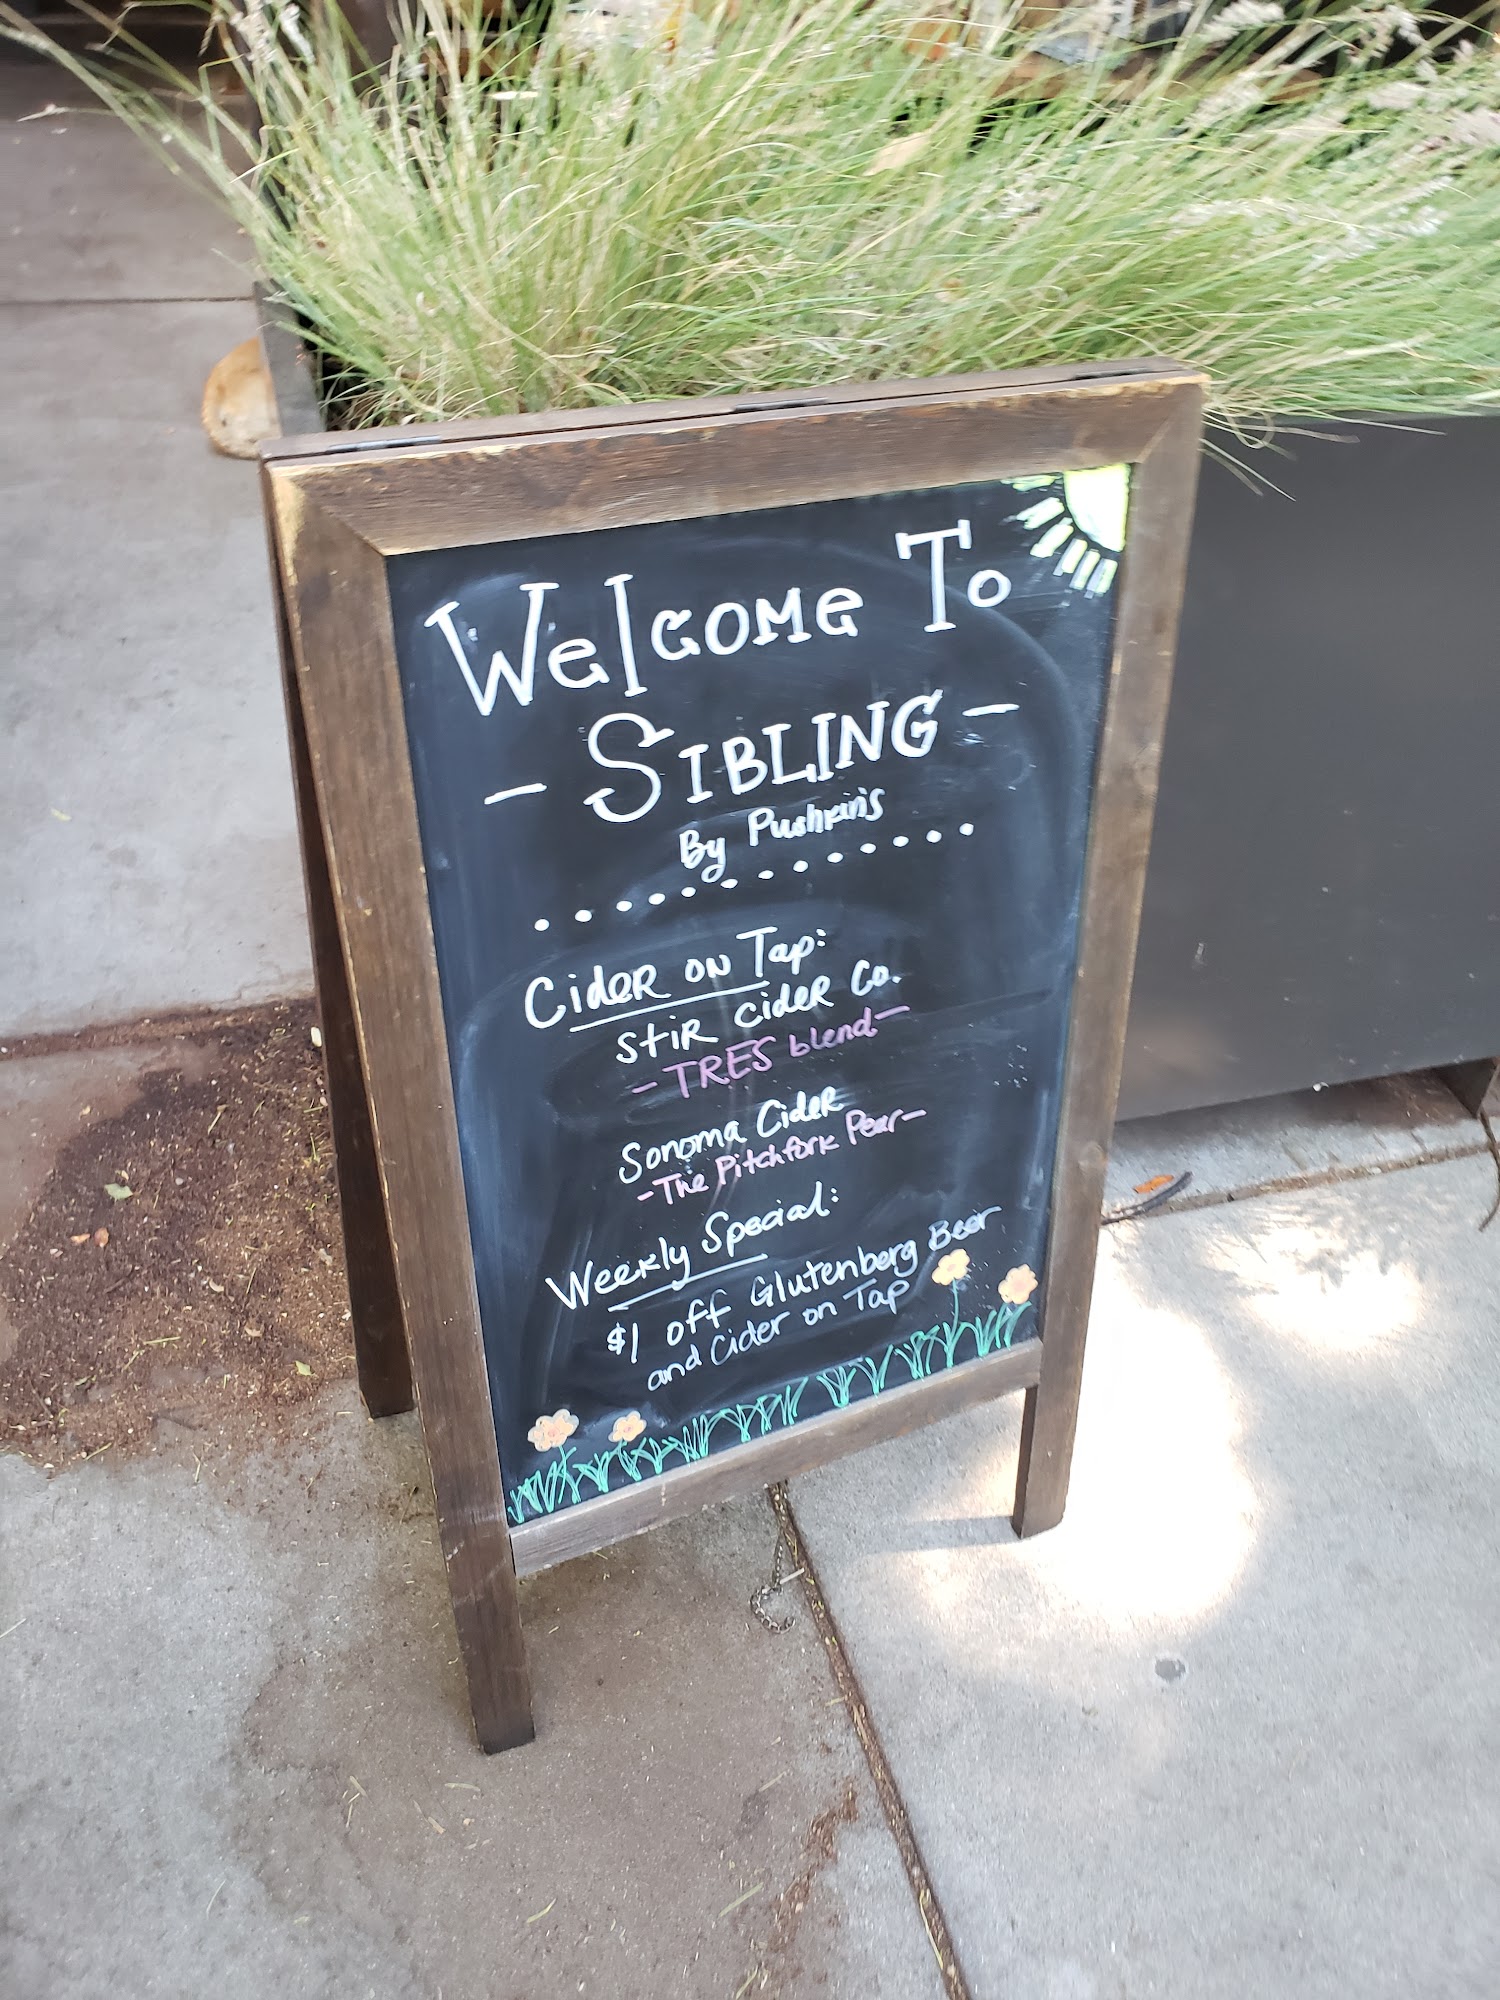 Welcome To
- SIBLING -
By Pushkin's
Cider on Tap:
Stir Cider Co.
- TRES blend -
Sonoma Cider
- The Pitchfork Pear -
Weekly Special:
$1 off Glutenberg Beer
and Cider on Tap